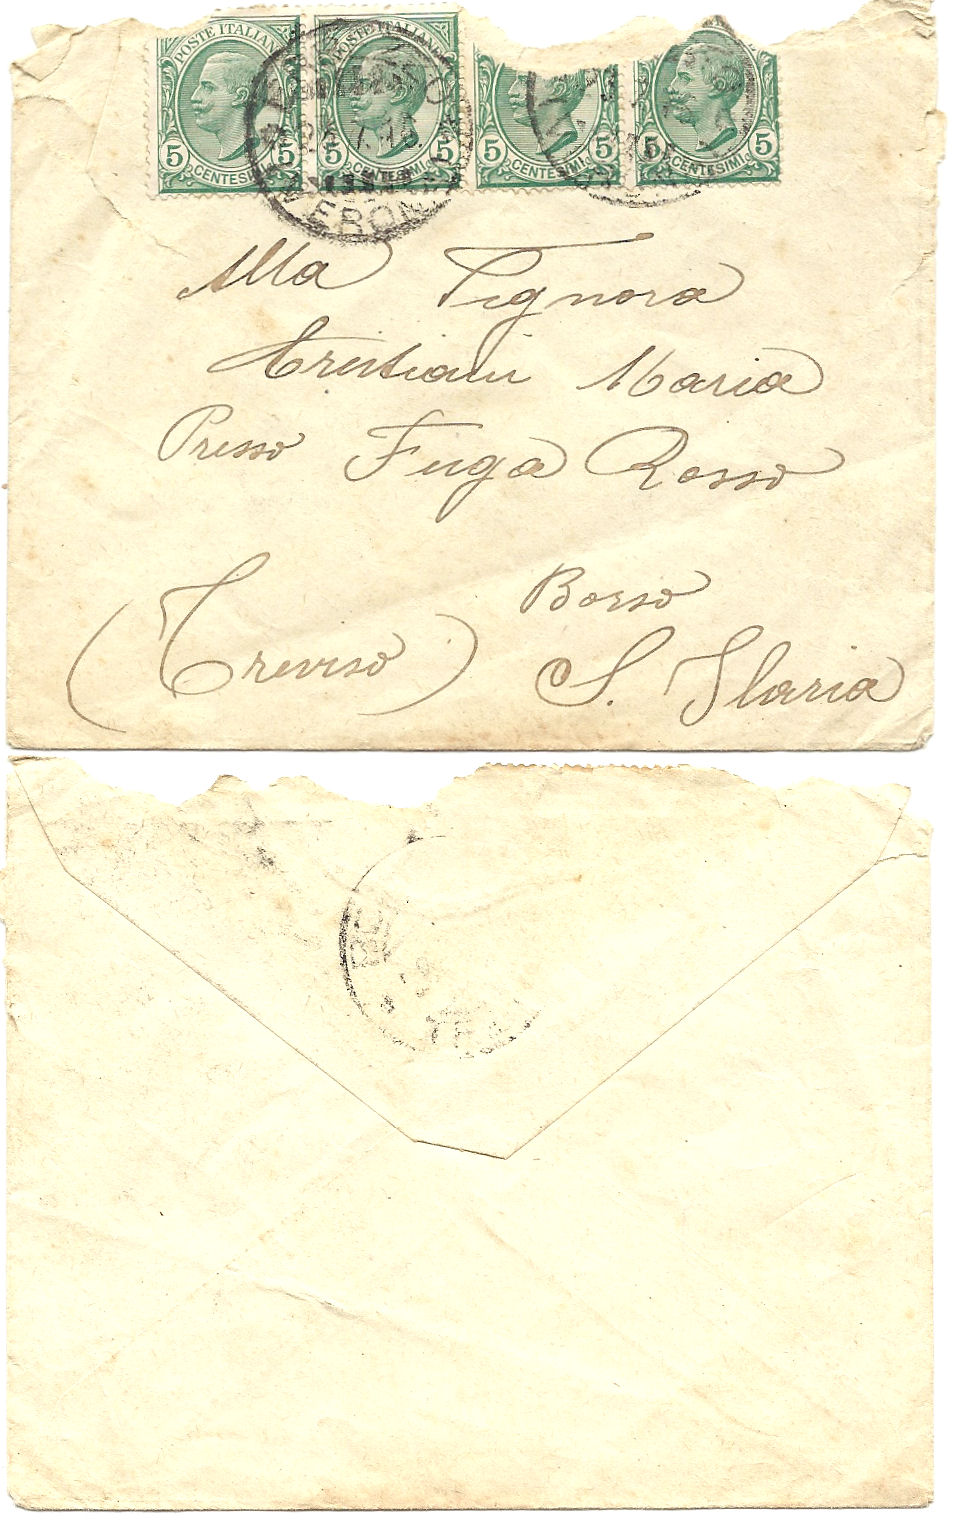 POSTE ITALIANE POSTE ITALIANE
5 CENTESIMI 5 5 CENTESIMI 5 5 CENTESIMI 5 5 CENTESIMI 5
VERONA
Alla Signora
Cristiani Maria
Presso Fuga Rosso
Borso
(Treviso) S. Ilaria